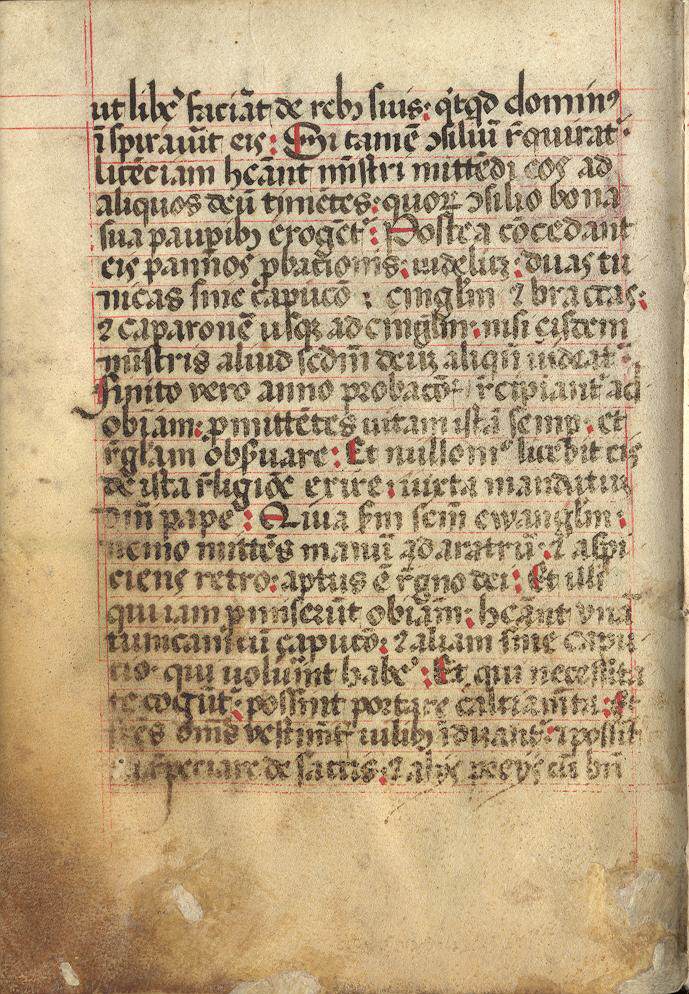 ut libẽ faciãt de rebꝫ suis: q̇tqd dominꝰ
ĩspirauũt eis: Si tamẽ ↄsiliũ r̃quirat̃:
licẽciam hẽãnt mĩstri mittẽdi eos ad
aliquos deũ timẽtes: quoꝝ ↄsilio bona
sua paupibꝫ eroget̃: Postea cõcedant
eis pannos ꝓbationis: uidelicꝫ: duas tu
nicas sine capucõ: cinglm̃ ⁊ braccas:
⁊ caparonẽ usqꝫ ad cinglm̃: nisi eisdem
mĩstris aliud scdm̃ deũ aliqñ uideat̃:
finito vero anno probacõ̃ r̃cipiant̃ ad
obiam: ꝓmittẽtes uitam istã semp: et
r̃glam obseruare: Et nullomᵒ licebit eis
de ista r̃ligiõe exire: iuxta mandatũ
dñi pape: Quia scm̃ ewanglm̃:
nemo mittẽs manũ ad aratrũ: ⁊ aspi
ciens retro: aptus ẽ r̃gno dei: Et illi
qui iam ꝓmiserũt obiam: hẽãnt vnã
tunicam cũ capucõ: ⁊ aliam sine capu
cio· qui uoluĩnt habeᵉ: Et qui necessita
te cogũt̃: possint portare calciamta: Et
frẽs om̃s vestimt̃ uilibꝫ ĩduant̃: ⁊ possĩt
repeciare de saccis: ⁊ alijs peciis cũ bñ